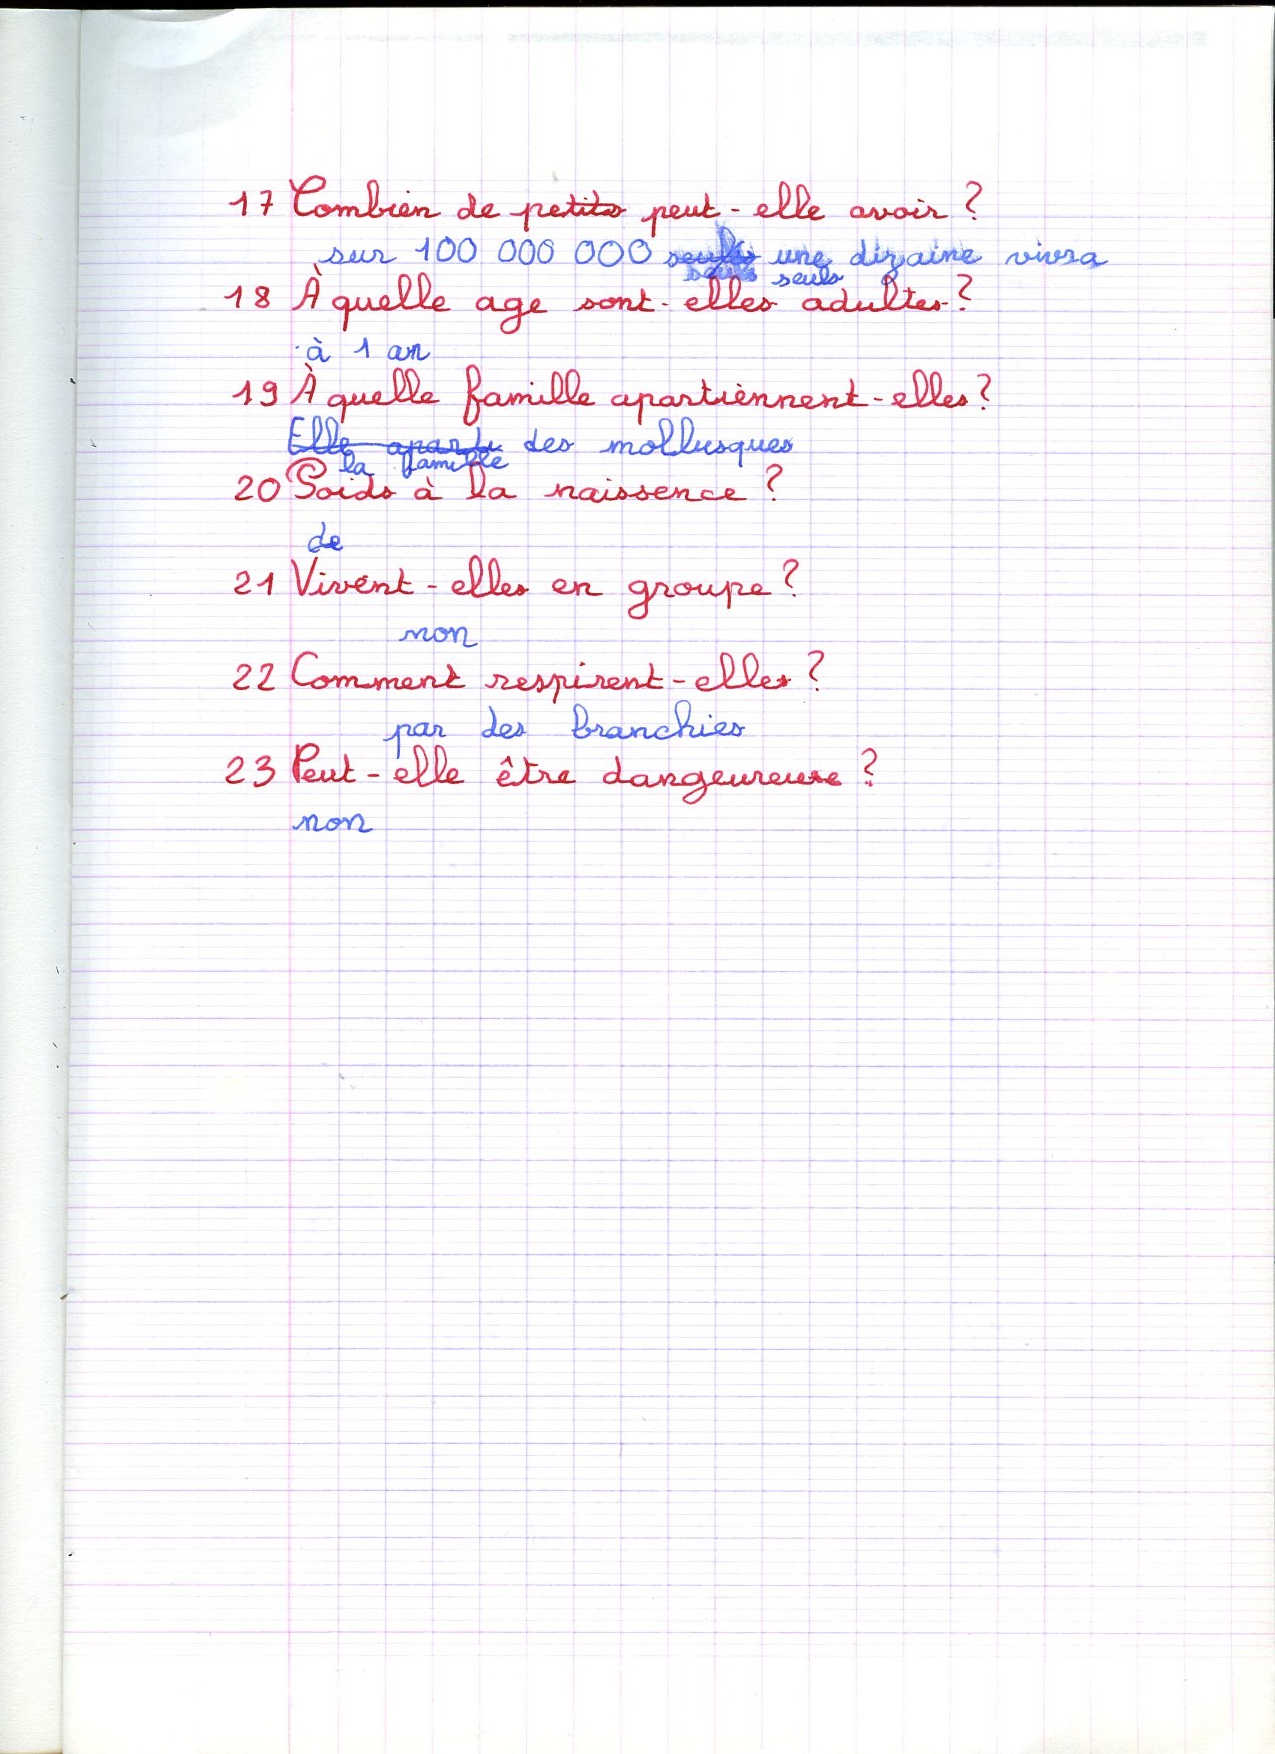 17 Combien de petits peut-elle avoir ?
sur 100 000 000 une dizaine vivra
seuls
18 À quelle age sont-elles adultes ?
à 1 an
19 À quelle famille apartiennent-elles ?
Elle apartu des mollusques
la famille
20 Poids à la naissence ?
de
21 Vivent-elles en groupe ?
non
22 Comment respirent-elles ?
par des branchies
23 Peut-elle être dangeureuse ?
non